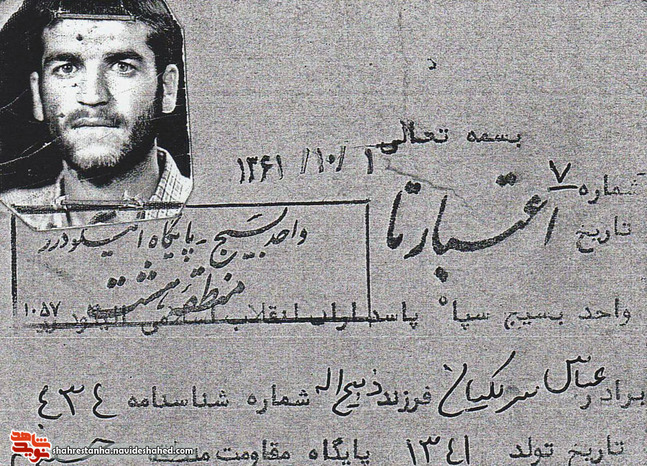 بسمه تعالی
شماره ۷
اعتبار تا ۱۳۶۱/۱۰/۱
تاریخ
واحد بسیج - پایگاه الیگودرز
منطقه هشت
۱۰۵۷
واحد بسیج سپاه پاسداران انقلاب اسلامی
برادر عباس فرزند ذبیح اله شماره شناسنامه ۴۳۴
تاریخ تولد ۱۳۴۱ پایگاه مقاومت
shahrestanha.navideshahed.com